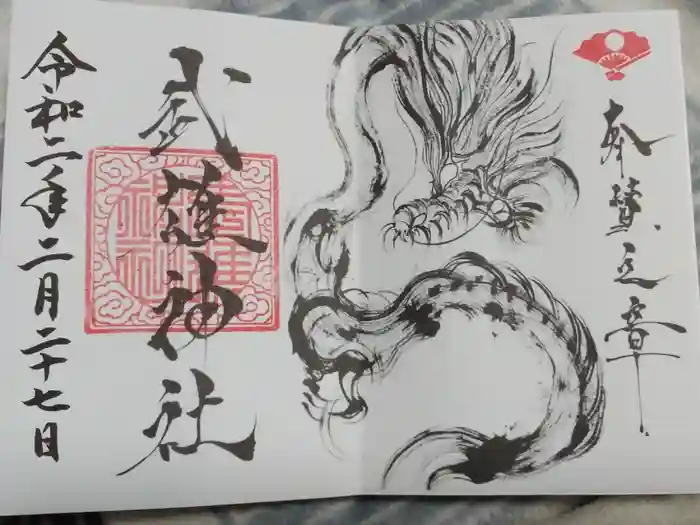 奉賛之章
武雄神社
令和二年二月二十七日